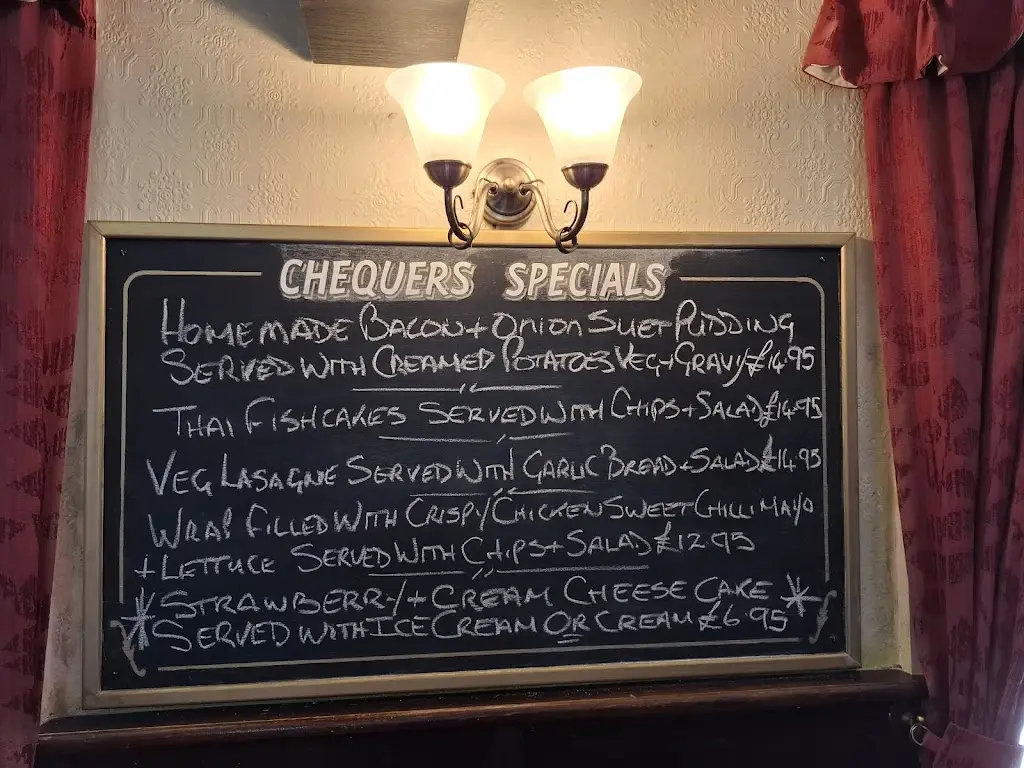 CHEQUERS SPECIALS
HOMEMADE BACON + ONION SUET PUDDING
SERVED WITH CREAMED POTATOES VEG + GRAVY £14.95
THAI FISHCAKES SERVED WITH CHIPS + SALAD £14.95
VEG LASAGNE SERVED WITH GARLIC BREAD + SALAD £14.95
WRAP FILLED WITH CRISPY CHICKEN SWEET CHILLI MAYO
+ LETTUCE SERVED WITH CHIPS + SALAD £12.95
STRAWBERRY + CREAM CHEESE CAKE
SERVED WITH ICE CREAM OR CREAM £6.95